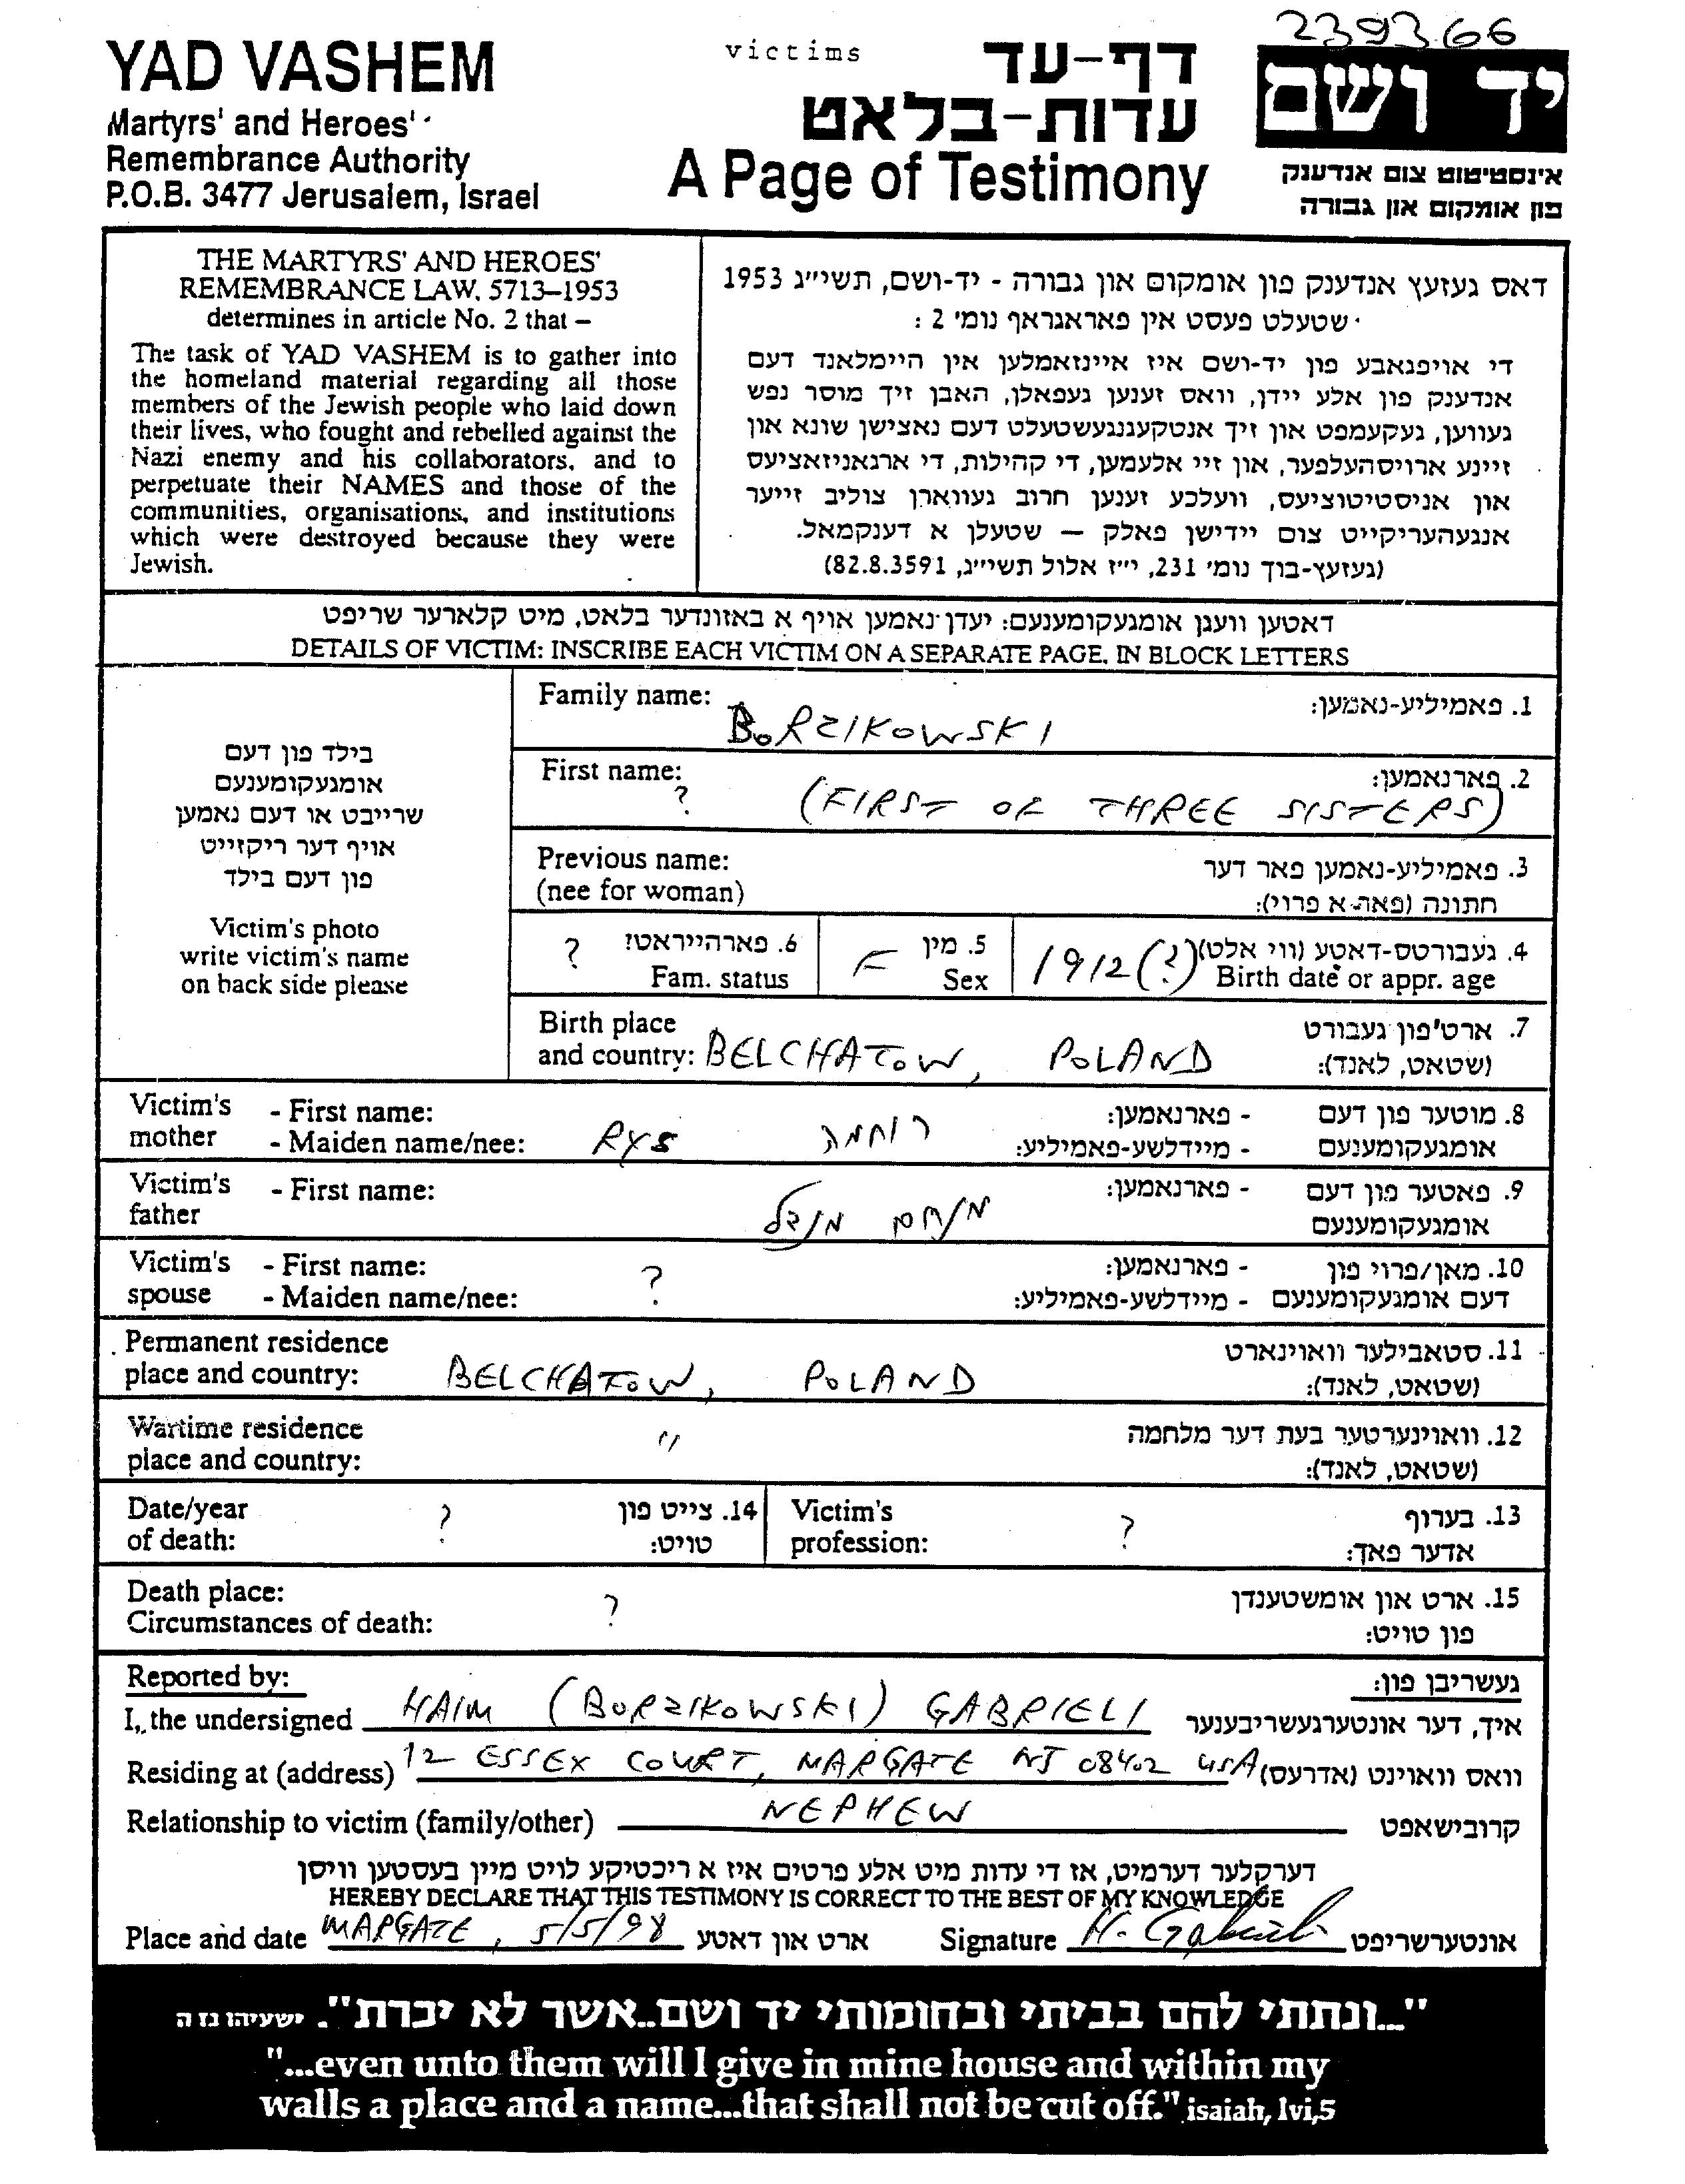 2393.66
YAD VASHEM
Martyrs' and Heroes'
Remembrance Authority
P.O.B. 3477 Jerusalem, Israel
victims
דף-עד
עדות-בלאט
A Page of Testimony
יד ושם
אינסטיטוט צום אנדענק
פון אומקום און גבורה
THE MARTYRS' AND HEROES'
REMEMBRANCE LAW, 5713–1953
determines in article No. 2 that –
The task of YAD VASHEM is to gather into
the homeland material regarding all those
members of the Jewish people who laid down
their lives, who fought and rebelled against the
Nazi enemy and his collaborators, and to
perpetuate their NAMES and those of the
communities, organisations, and institutions
which were destroyed because they were
Jewish.
דאס געזעץ אנדענק פון אומקום און גבורה - יד-ושם, תשי״ג 1953
שטעלט פעסט אין פאראגראף נומ׳ 2 :
די אויפגאבע פון יד-ושם איז איינזאמלען אין היימלאנד דעם
אנדענק פון אלע יידן, וואס זענען געפאלן, האבן זיך מוסר נפש
געווען, געקעמפט און זיך אנטקעגנגעשטעלט דעם נאצישן שונא און
זיינע ארויסהעלפער, און זיי אלעמען, די קהילות, די ארגאניזאציעס
און אניסטיטוציעס, וועלכע זענען חרוב געווארן צוליב זייער
אנגעהעריקייט צום יידישן פאלק – שטעלן א דענקמאל.
(געזעץ-בוך נומ׳ 231, י״ז אלול תשי״ג, 82.8.3591)
דאטען וועגן אומגעקומענעם: יעדן נאמען אויף א באזונדער בלאט, מיט קלארער שריפט
DETAILS OF VICTIM: INSCRIBE EACH VICTIM ON A SEPARATE PAGE, IN BLOCK LETTERS
בילד פון דעם
אומגעקומענעם
שרייבט או דעם נאמען
אויף דער ריקזייט
פון דעם בילד
Victim's photo
write victim's name
on back side please
Family name: BORZIKOWSKI 1. פאמיליע-נאמען:
First name: ? (FIRST OF THREE SISTERS) 2. פארנאמען:
Previous name: 3. פאמיליע-נאמען פאר דער
(nee for woman) חתונה (פאר א פרוי):
? 6. פארהייראט? F 5. מין 1912(?) 4. געבורטס-דאטע (ווי אלט)
Fam. status Sex Birth date or appr. age
Birth place 7. ארט פון געבורט
and country: BELCHATOW, POLAND (שטאט, לאנד):
Victim's - First name: - פארנאמען: 8. מוטער פון דעם
mother - Maiden name/nee: RYS רוחמה - מיידלשע-פאמיליע: אומגעקומענעם
Victim's - First name: - פארנאמען: 9. פאטער פון דעם
father מנחם מנדל אומגעקומענעם
Victim's - First name: ? - פארנאמען: 10. מאן/פרוי פון
spouse - Maiden name/nee: - מיידלשע-פאמיליע: דעם אומגעקומענעם
Permanent residence 11. סטאבילער וואוינארט
place and country: BELCHATOW, POLAND (שטאט, לאנד):
Wartime residence " 12. וואוינערטער בעת דער מלחמה
place and country: (שטאט, לאנד):
Date/year ? 14. צייט פון Victim's ? 13. בערוף
of death: טויט: profession: אדער פאך:
Death place: ? 15. ארט און אומשטענדן
Circumstances of death: פון טויט:
Reported by: געשריבן פון:
I, the undersigned HAIM (BORZIKOWSKI) GABRIELI איך, דער אונטערגעשריבענער
Residing at (address) 12 ESSEX COURT, MARGATE NJ 08402 USA וואס וואוינט (אדרעס)
Relationship to victim (family/other) NEPHEW קרובישאפט
דערקלער דערמיט, אז די עדות מיט אלע פרטים איז א ריכטיקע לויט מיין בעסטען וויסן
HEREBY DECLARE THAT THIS TESTIMONY IS CORRECT TO THE BEST OF MY KNOWLEDGE
Place and date MARGATE, 5/5/98 ארט און דאטע Signature H. Gabrieli אונטערשריפט
"...ונתתי להם בביתי ובחומותי יד ושם..אשר לא יכרת". ישעיהו נז ה
"...even unto them will I give in mine house and within my
walls a place and a name...that shall not be cut off." isaiah, lvi,5